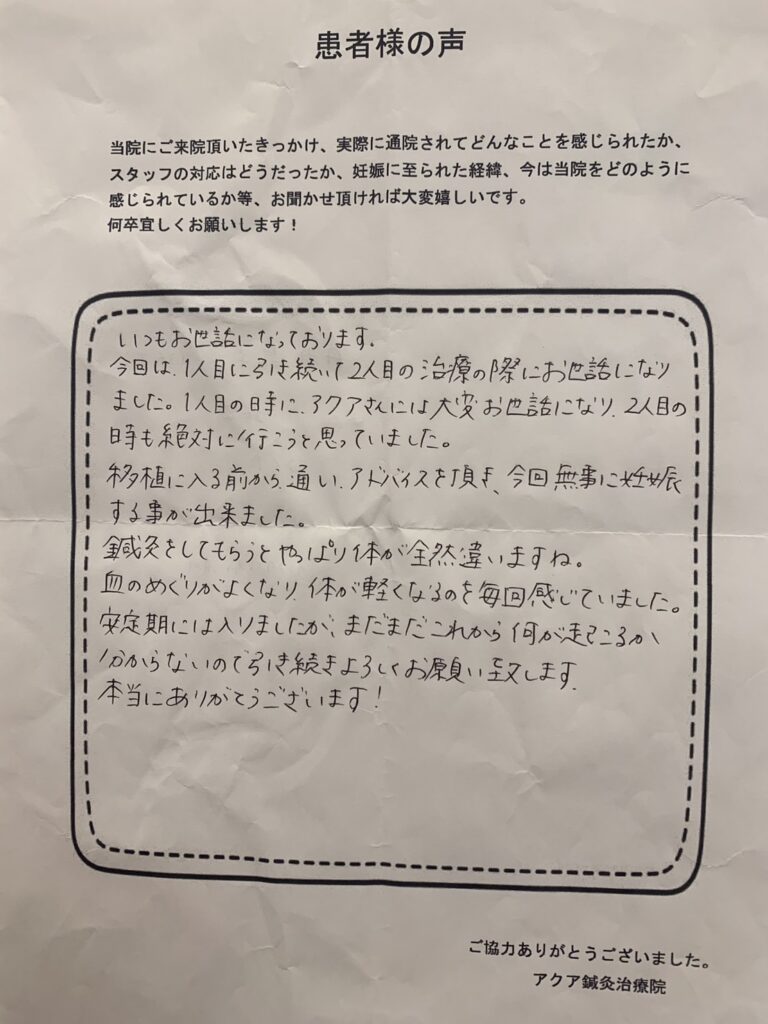 患者様の声
当院にご来院頂いたきっかけ、実際に通院されてどんなことを感じられたか、
スタッフの対応はどうだったか、妊娠に至られた経緯、今は当院をどのように
感じられているか等、お聞かせ頂ければ大変嬉しいです。
何卒宜しくお願いします！
いつもお世話になっております。
今回は、1人目に引き続いて2人目の治療の際にお世話になり
ました。1人目の時に、アクアさんには大変お世話になり、2人目の
時も絶対に行こうと思っていました。
移植に入る前から通い、アドバイスを頂き、今回無事に妊娠
する事が出来ました。
鍼灸をしてもらうとやっぱり体が全然違いますね。
血のめぐりがよくなり、体が軽くなるのを毎回感じていました。
安定期には入りましたが、まだまだこれから何が起こるか
分からないので引き続きよろしくお願い致します。
本当にありがとうございます！
ご協力ありがとうございました。
アクア鍼灸治療院